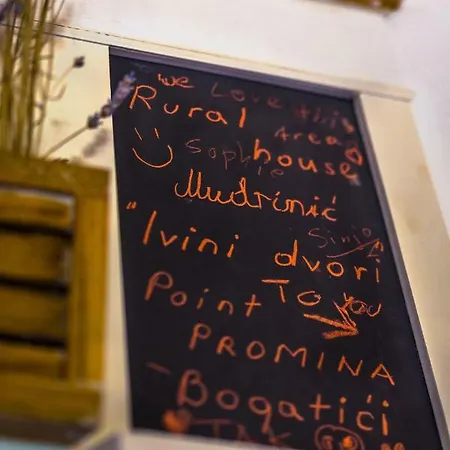 we Love this
Rural Area
Sophie house
Mudrinić
"Ivini dvori"
Sinj
Point TO you
PROMINA
- Bogatići